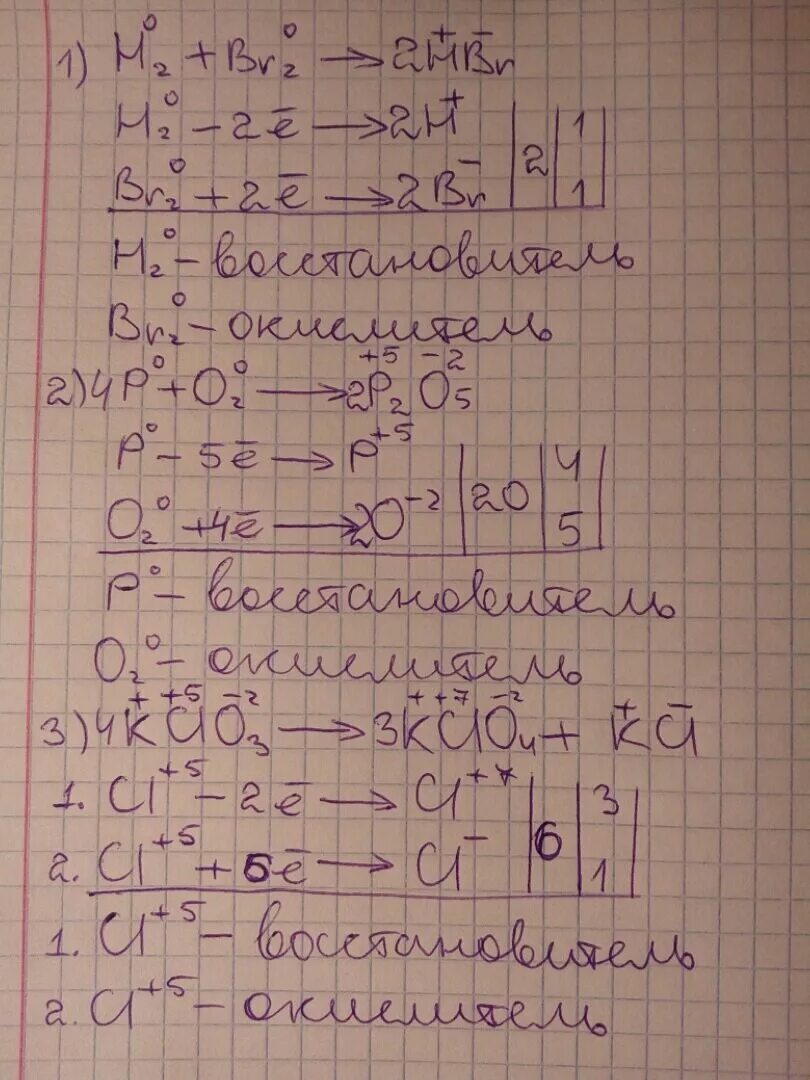 1) H₂⁰ + Br₂⁰ → 2H⁺Br⁻
H₂⁰ - 2ē → 2H⁺ | 2 | 1
Br₂⁰ + 2ē → 2Br⁻ | 1
H₂⁰ - восстановитель
Br₂⁰ - окислитель
2) 4P⁰ + O₂⁰ → 2P₂⁺⁵O₅⁻²
P⁰ - 5ē → P⁺⁵ | 20 | 4
O₂⁰ + 4ē → 2O⁻² | 5
P⁰ - восстановитель
O₂⁰ - окислитель
3) 4K⁺Cl⁺⁵O₃⁻² → 3K⁺Cl⁺⁷O₄⁻² + K⁺Cl⁻
1. Cl⁺⁵ - 2ē → Cl⁺⁷ | 6 | 3
2. Cl⁺⁵ + 6ē → Cl⁻ | 1
1. Cl⁺⁵ - восстановитель
2. Cl⁺⁵ - окислитель